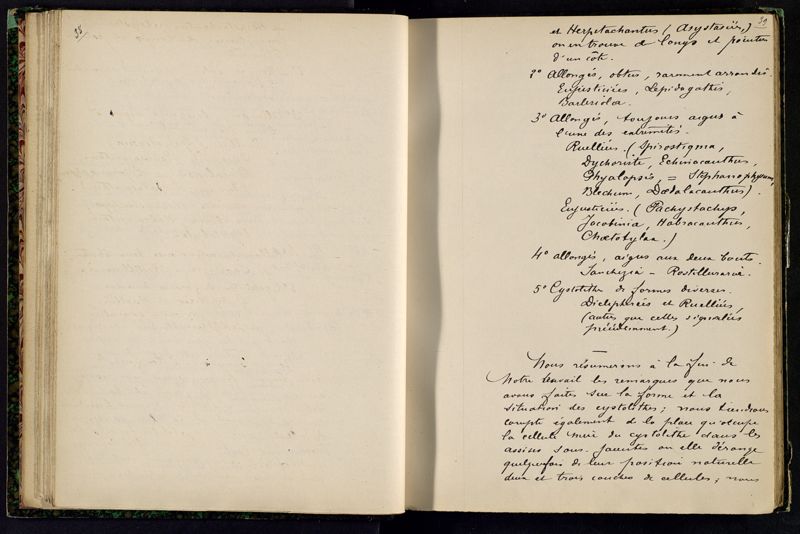 38
39
et Herpetachantus (Asystasiées,)
on en trouve de longs et pointus
d'un côté.
2° Allongés, obtus, rarement arrondis.
Eujusticiées, Lepidagathis,
Barleriola.
3° Allongés, toujours aigus à
l'une des extrémités.
Ruelliées. (Spirostigma,
Dychoriste, Echinacanthus,
Phyalopsis, = Stephanophysum,
Blechum, Dædalacanthus).
Eujusticiées. (Pachystachys,
Jacobinia, Habracanthus,
Chætotylax.)
4° allongés, aigus aux deux bouts.
Sanchezia - Rostellularia.
5° Cystolithe de formes diverses.
Dicliptérées et Ruelliées,
(autres que celles signalées
précédemment.)
Nous résumerons à la fin de
notre travail les remarques que nous
avons faites sur la forme et la
situation des cystolithes; nous tiendrons
compte également de la place qu'occupe
la cellule mère du cystolithe dans les
assises sous-jacentes où elle dérange
quelquefois de leur position naturelle
deux et trois couches de cellules; nous